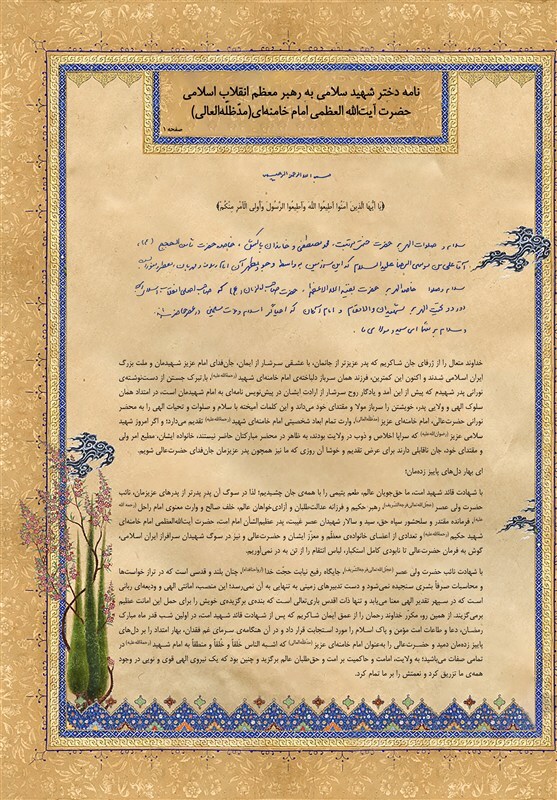 نامه دختر شهید سلامی به رهبر معظم انقلاب اسلامی
حضرت آیت‌الله العظمی امام خامنه‌ای(مدّظلّه‌العالی)
صفحه ۱
بسم الله الرحمن الرحیم
﴿یَا أَیُّهَا الَّذِینَ آمَنُوا أَطِیعُوا اللَّهَ وَأَطِیعُوا الرَّسُولَ وَأُولِی الْأَمْرِ مِنْکُمْ﴾
سلام و صلوات الهی بر حضرت محمد مصطفی و خاندان پاکش
آقا علی بن موسی الرضا علیه السلام که این سرزمین به واسطه وجود مطهر آن
سلام و
خداوند متعال را از ژرفای جان شاکریم که پدر عزیزتر از جانمان، با عشقی سرشار از ایمان، جان‌فدای امام عزیز شهیدمان و ملت بزرگ
ایران اسلامی شدند و اکنون این کمترین، فرزند همان سرباز دلباخته‌ی امام خامنه‌ای شهید با تبرک جستن از دست‌نوشته‌ی
نورانی پدر شهیدم که پیش از این آمد و یادگار روح سرشار از ارادت ایشان در پیش‌نویس نامه‌ای به امام شهیدمان است، در امتداد همان
سلوک الهی و ولایی پدر، خویشتن را سرباز مولا و مقتدای خود می‌داند و این کلمات آمیخته با سلام و صلوات و تحیات الهی را به محضر
نورانی حضرت‌عالی، امام خامنه‌ای عزیز وارث تمام ابعاد شخصیتی امام خامنه‌ای شهید تقدیم می‌دارد؛ و اگر امروز شهید
سلامی عزیز که سراپا اخلاص و ذوب در ولایت بودند، به ظاهر در محضر مبارکتان حاضر نیستند، خانواده ایشان، مطیع امر ولی
و مقتدای خود، جان ناقابلی دارند برای عرض تقدیم و خوشا آن روزی که ما نیز همچون پدر عزیزمان جان‌فدای حضرت‌عالی شویم.
ای بهار دل‌های پاییز زده‌مان؛
با شهادت قائد شهید امت، ما حق‌جویان عالم، طعم یتیمی را با همه‌ی جان چشیدیم؛ لذا در سوگ آن پدر پدرتر از پدرهای عزیزمان، نائب
حضرت ولی عصر رهبر حکیم و فرزانه عدالت‌طلبان و آزادی‌خواهان عالم، خلف صالح و وارث معنوی امام راحل
فرمانده مقتدر و سلحشور سپاه حق، سید و سالار شهیدان عصر غیبت، پدر عظیم‌الشأن امام امت، حضرت آیت‌الله‌العظمی امام خامنه‌ای
شهید حکیم و تعدادی از اعضای خانواده‌ی معظّم و معزز ایشان و حضرت‌عالی و نیز در سوگ شهیدان سرافراز ایران اسلامی،
گوش به فرمان حضرت‌عالی تا نابودی کامل استکبار، لباس انتقام را از تن به در نمی‌آوریم.
با شهادت نائب حضرت ولی عصر جایگاه رفیع نیابت حجّت خدا چنان بلند و قدسی است که در تراز خواست‌ها
و محاسبات صرفاً بشری سنجیده نمی‌شود و دست تدبیرهای زمینی به تنهایی به آن نمی‌رسد؛ این منصب، امانتی الهی و ودیعه‌ای ربانی
است که در سپهر تقدیر الهی معنا می‌یابد و تنها ذات اقدس باری‌تعالی است که بنده‌ی برگزیده‌ی خویش را برای حمل این امانت عظیم
برمی‌گزیند. از همین رو، مکرّر خداوند رحمان را از عمق ایمان شاکریم که پس از شهادت قائد شهید امت، در اولین شب قدر ماه مبارک
رمضان، دعا و طاعات امت مؤمن و پاک اسلام را مورد استجابت قرار داد و در آن هنگامه‌ی سرمای غم فقدان، بهار امتداد را بر دل‌های
پاییز زده‌مان دمید و حضرت‌عالی را به‌عنوان امام خامنه‌ای عزیز که اشبه الناس خَلقاً و خُلقاً و منطقاً به امام خامنه‌ای شهید در
تمامی صفات می‌باشید؛ به ولایت، امامت و حاکمیت بر امت و حق‌طلبان عالم برگزید و چنین بود که یک نیروی الهی قوی و نویی در وجود
همه‌ی ما تزریق کرد و نعمتش را بر ما تمام کرد.